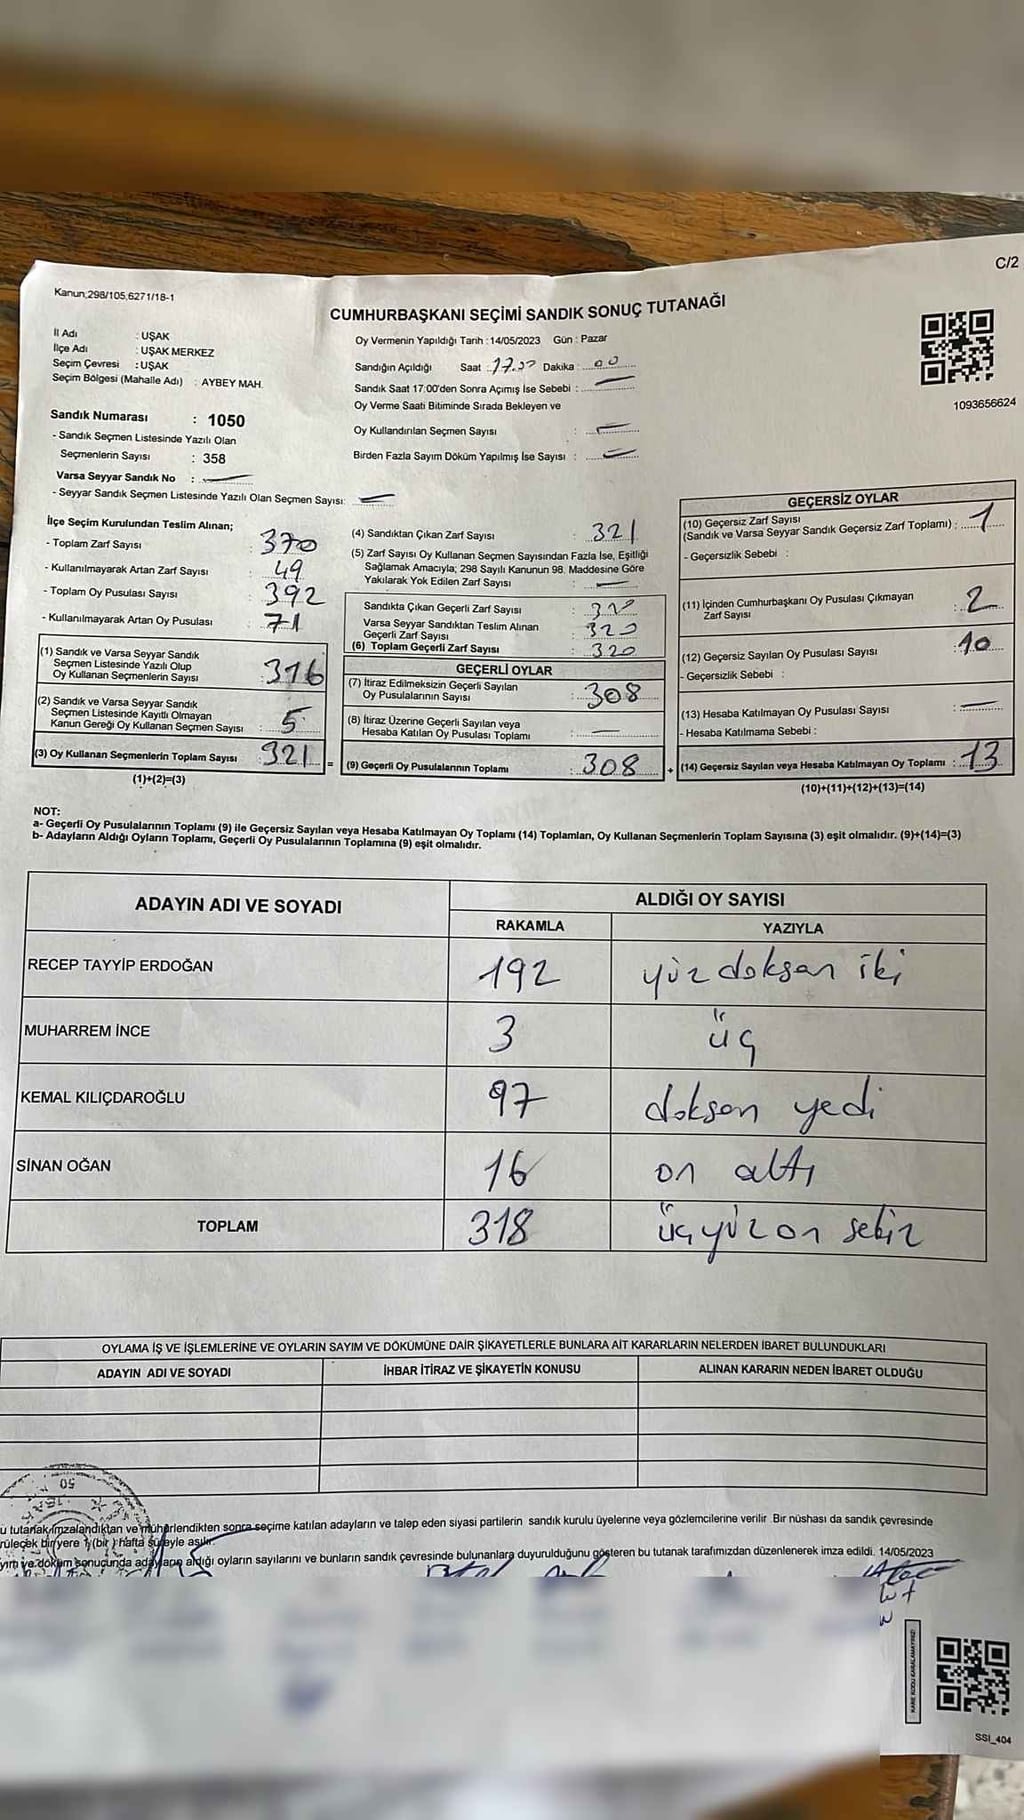 C/2
Kanun,298/105,6271/18-1
CUMHURBAŞKANI SEÇİMİ SANDIK SONUÇ TUTANAĞI
İl Adı : UŞAK
İlçe Adı : UŞAK MERKEZ
Seçim Çevresi : UŞAK
Seçim Bölgesi (Mahalle Adı) : AYBEY MAH.
Sandık Numarası : 1050
- Sandık Seçmen Listesinde Yazılı Olan
Seçmenlerin Sayısı : 358
Varsa Seyyar Sandık No :
- Seyyar Sandık Seçmen Listesinde Yazılı Olan Seçmen Sayısı:
Oy Vermenin Yapıldığı Tarih : 14/05/2023 Gün : Pazar
Sandığın Açıldığı Saat : 17.00 Dakika : 00
Sandık Saat 17:00'den Sonra Açımış İse Sebebi :
Oy Verme Saati Bitiminde Sırada Bekleyen ve
Oy Kullandırılan Seçmen Sayısı :
Birden Fazla Sayım Döküm Yapılmış İse Sayısı :
1093656624
İlçe Seçim Kurulundan Teslim Alınan;
- Toplam Zarf Sayısı : 370
- Kullanılmayarak Artan Zarf Sayısı : 49
- Toplam Oy Pusulası Sayısı : 392
- Kullanılmayarak Artan Oy Pusulası : 71
(1) Sandık ve Varsa Seyyar Sandık
Seçmen Listesinde Yazılı Olup
Oy Kullanan Seçmenlerin Sayısı : 316
(2) Sandık ve Varsa Seyyar Sandık
Seçmen Listesinde Kayıtlı Olmayan
Kanun Gereği Oy Kullanan Seçmen Sayısı : 5
(3) Oy Kullanan Seçmenlerin Toplam Sayısı : 321
(1)+(2)=(3)
(4) Sandıktan Çıkan Zarf Sayısı : 321
(5) Zarf Sayısı Oy Kullanan Seçmen Sayısından Fazla İse, Eşitliği
Sağlamak Amacıyla; 298 Sayılı Kanunun 98. Maddesine Göre
Yakılarak Yok Edilen Zarf Sayısı :
Sandıkta Çıkan Geçerli Zarf Sayısı :
Varsa Seyyar Sandıktan Teslim Alınan
Geçerli Zarf Sayısı : 320
(6) Toplam Geçerli Zarf Sayısı : 320
GEÇERLİ OYLAR
(7) İtiraz Edilmeksizin Geçerli Sayılan
Oy Pusulalarının Sayısı : 308
(8) İtiraz Üzerine Geçerli Sayılan veya
Hesaba Katılan Oy Pusulası Toplamı :
= (9) Geçerli Oy Pusulalarının Toplamı : 308
GEÇERSİZ OYLAR
(10) Geçersiz Zarf Sayısı
(Sandık ve Varsa Seyyar Sandık Geçersiz Zarf Toplamı) : 1
- Geçersizlik Sebebi :
(11) İçinden Cumhurbaşkanı Oy Pusulası Çıkmayan
Zarf Sayısı : 2
(12) Geçersiz Sayılan Oy Pusulası Sayısı : 10
- Geçersizlik Sebebi :
(13) Hesaba Katılmayan Oy Pusulası Sayısı :
- Hesaba Katılmama Sebebi :
+ (14) Geçersiz Sayılan veya Hesaba Katılmayan Oy Toplamı : 13
(10)+(11)+(12)+(13)=(14)
NOT:
a- Geçerli Oy Pusulalarının Toplamı (9) ile Geçersiz Sayılan veya Hesaba Katılmayan Oy Toplamı (14) Toplamları, Oy Kullanan Seçmenlerin Toplam Sayısına (3) eşit olmalıdır. (9)+(14)=(3)
b- Adayların Aldığı Oyların Toplamı, Geçerli Oy Pusulalarının Toplamına (9) eşit olmalıdır.
ADAYIN ADI VE SOYADI
ALDIĞI OY SAYISI
RAKAMLA YAZIYLA
RECEP TAYYİP ERDOĞAN 192 yüz doksan iki
MUHARREM İNCE 3 üç
KEMAL KILIÇDAROĞLU 97 doksan yedi
SİNAN OĞAN 16 on altı
TOPLAM 318 üçyüz on sekiz
OYLAMA İŞ VE İŞLEMLERİNE VE OYLARIN SAYIM VE DÖKÜMÜNE DAİR ŞİKAYETLERLE BUNLARA AİT KARARLARIN NELERDEN İBARET BULUNDUKLARI
ADAYIN ADI VE SOYADI İHBAR İTİRAZ VE ŞİKAYETİN KONUSU ALINAN KARARIN NEDEN İBARET OLDUĞU
u tutanak imzalandıktan ve mühürlendikten sonra seçime katılan adayların ve talep eden siyasi partilerin sandık kurulu üyelerine veya gözlemcilerine verilir. Bir nüshası da sandık çevresinde
rülecek bir yere 1 (bir) hafta süreyle asılır.
yım ve döküm sonucunda adayların aldığı oyların sayılarını ve bunların sandık çevresinde bulunanlara duyurulduğunu gösteren bu tutanak tarafımızdan düzenlenerek imza edildi. 14/05/2023
KARE KODU KARALAMAYINIZ!
SSİ_404